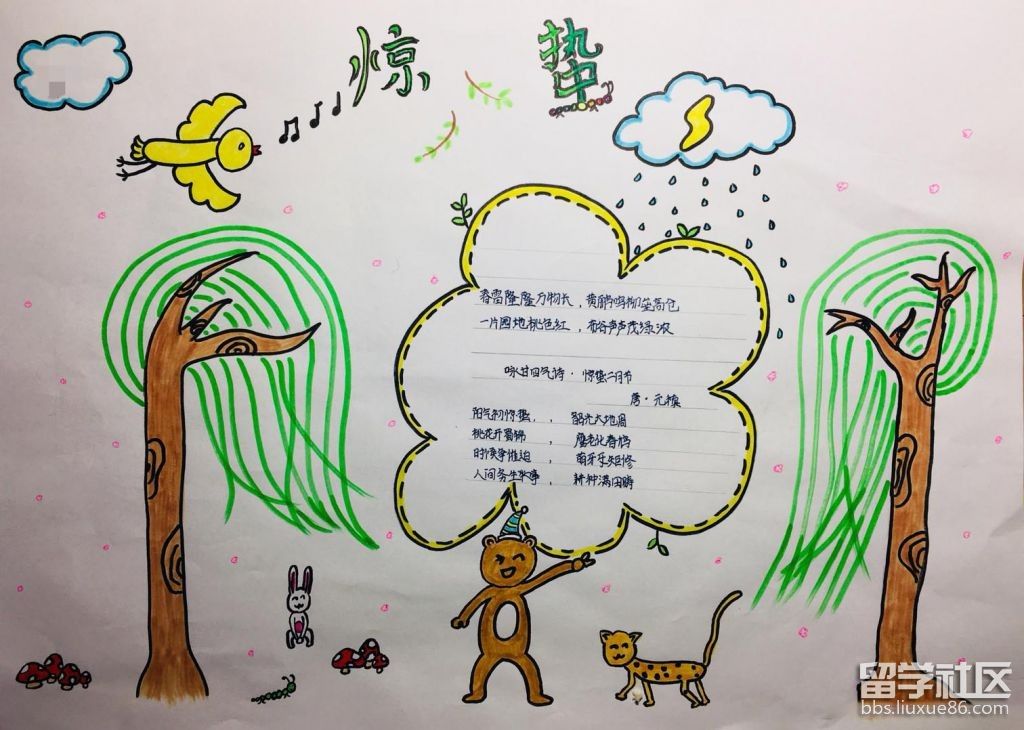 惊蛰
春雷隆隆万物长，黄鹂鸣柳坐高仓
一片园地桃色红，布谷声声茂绿浓
咏廿四气诗·惊蛰二月节
唐·元稹
阳气初惊蛰，韶光大地周
桃花开蜀锦，鹰老化春鸠
时候争催迫，萌芽矛矩修
人间务生事，耕种满田畴
留学社区
bbs.liuxue86.com